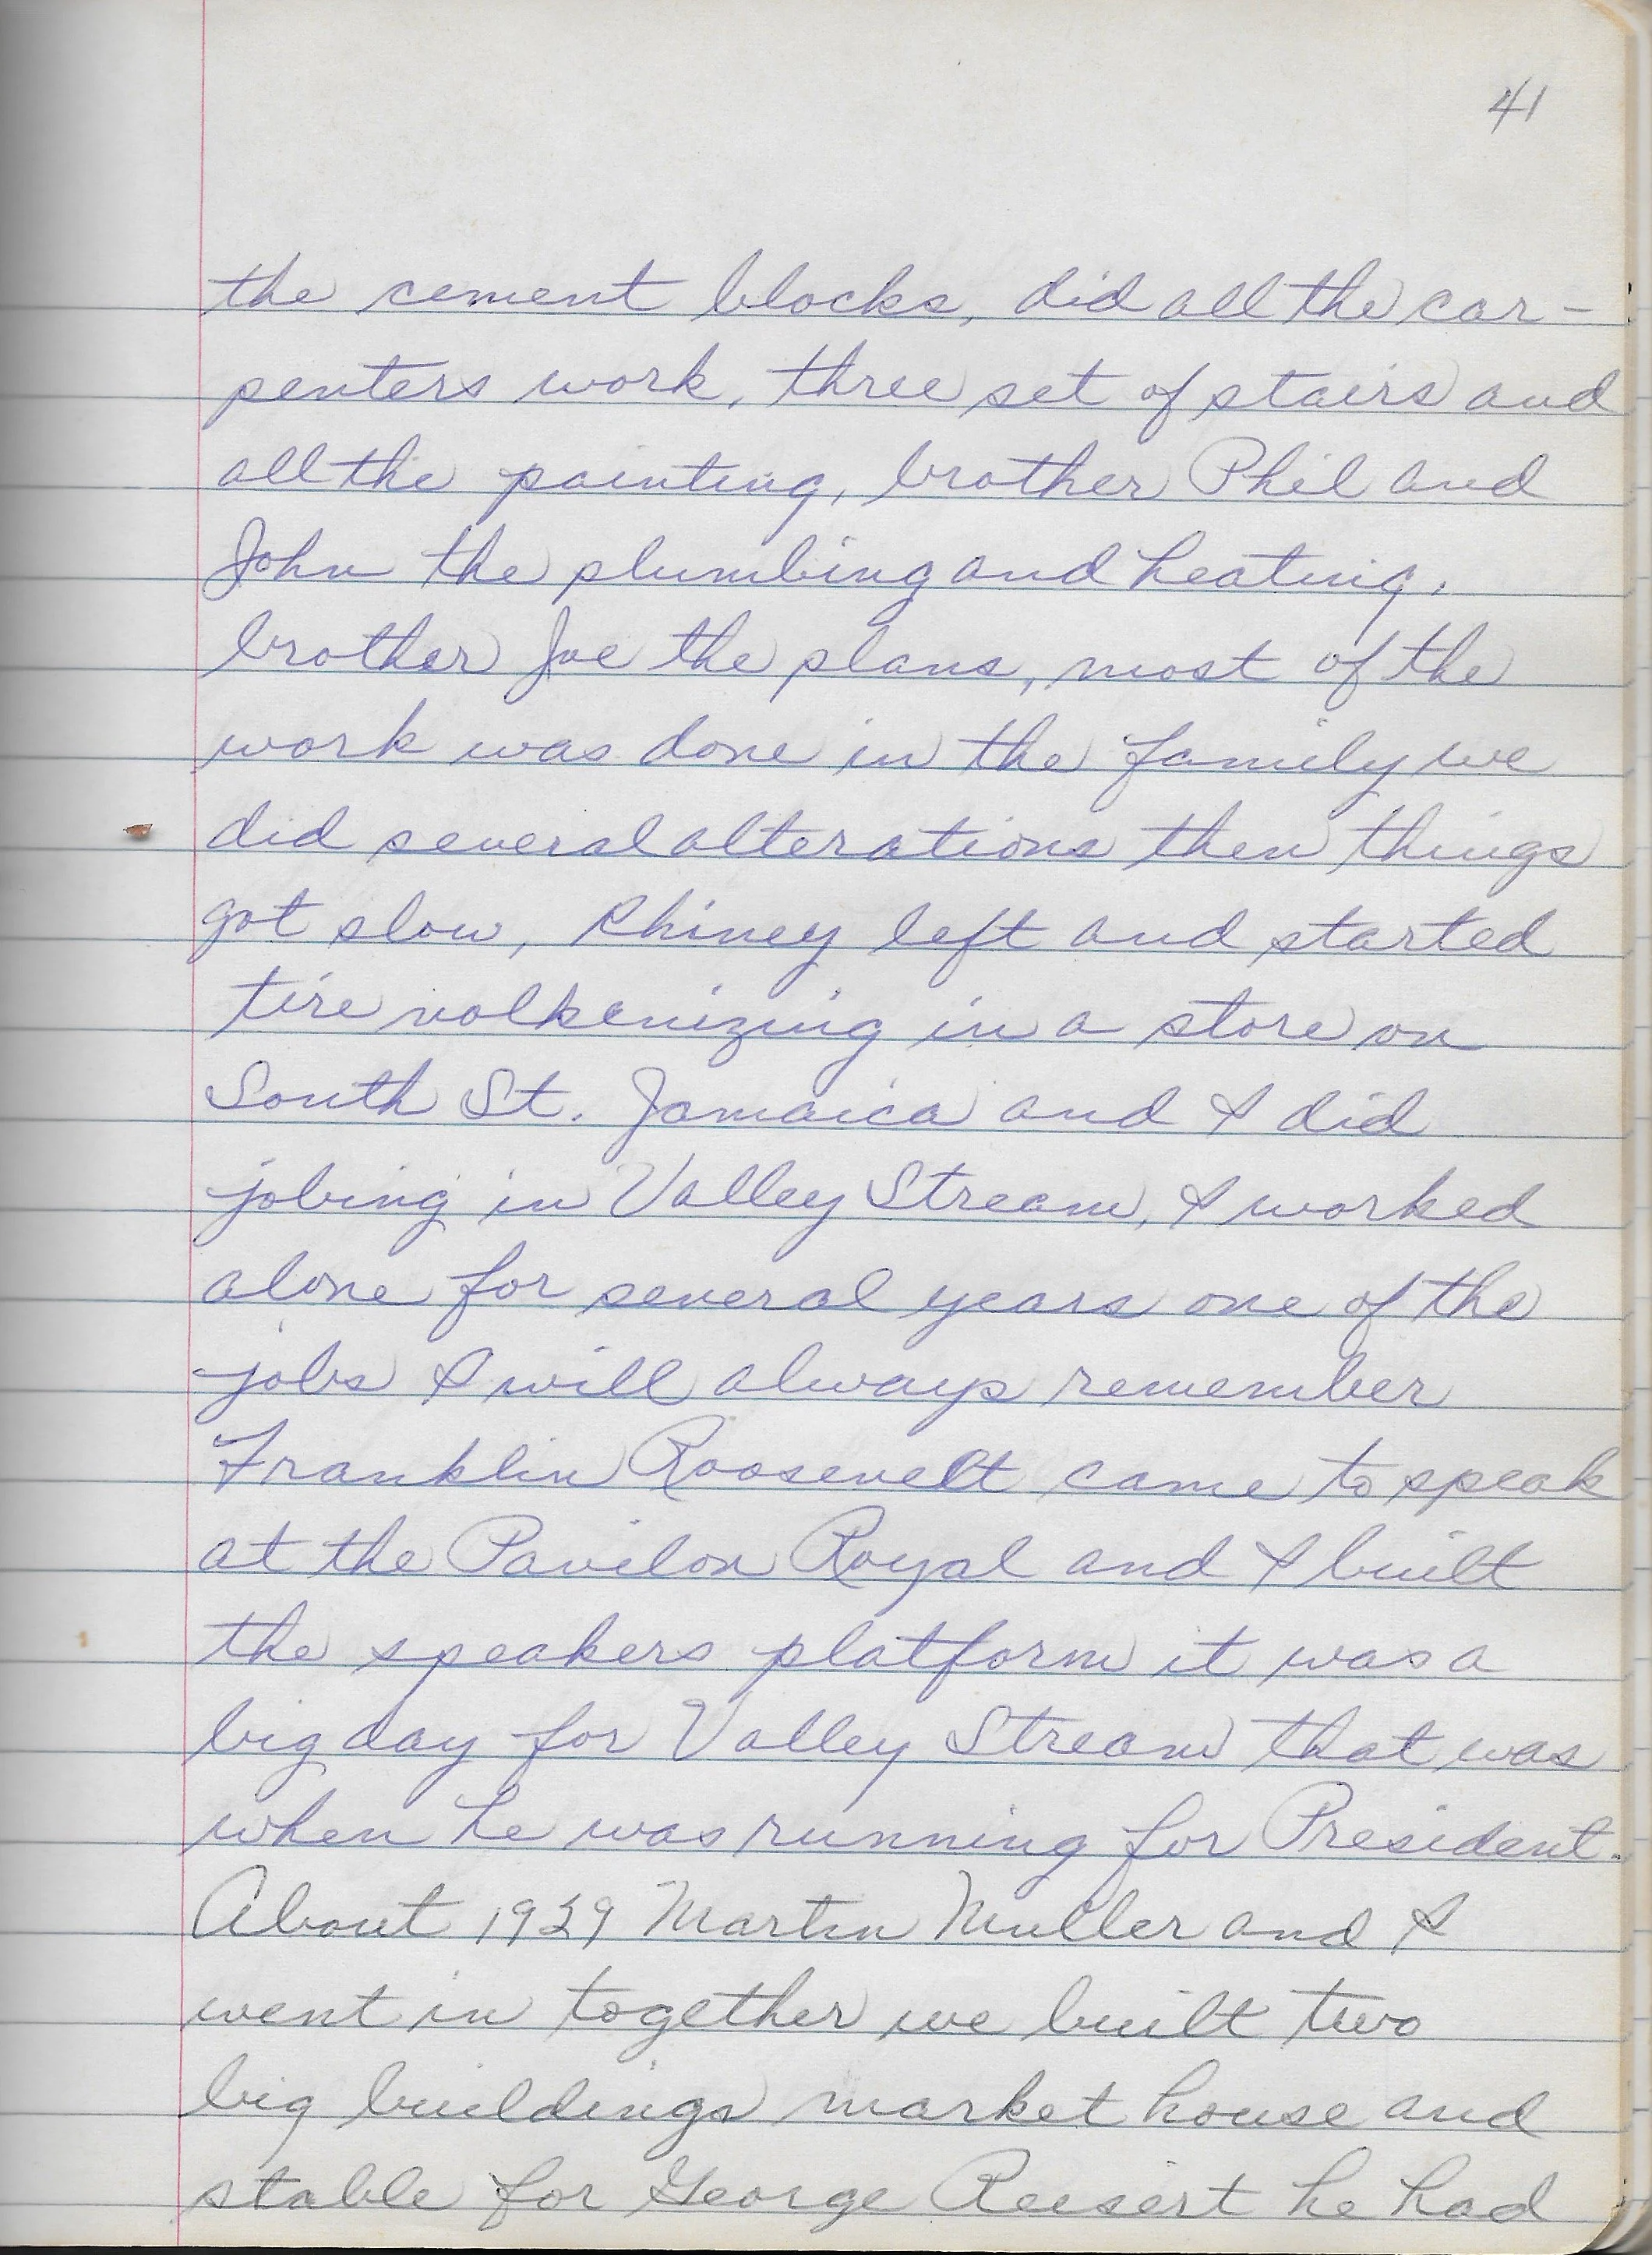 41
the cement blocks, did all the car-
penters work, three set of stairs and
all the painting, brother Phil and
John the plumbing and heating,
brother Joe the plans, most of the
work was done in the family we
did several alterations then things
got slow, Rhiney left and started
tire volkenizing in a store on
South St. Jamaica and I did
jobing in Valley Stream, I worked
alone for several years one of the
jobs I will always remember
Franklin Roosevelt came to speak
at the Pavilon Royal and I built
the speakers platform it was a
big day for Valley Stream that was
when he was running for President.
About 1929 Martin Muller and I
went in together we built two
big buildings market house and
stable for George Reisert he had